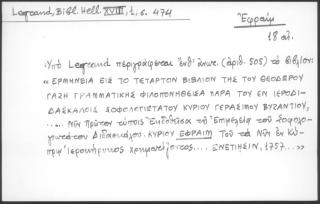 Legrand, Bibl. Hell. XVIII, 1, σ. 474
Ἐφραίμ
18 αἰ.
Ὑπὸ Legrand περιγράφεται ἐνθ' ἀνωτ. (ἀριθ. 505) τὸ βιβλίον:
« ΕΡΜΗΝΕΙΑ ΕΙΣ ΤΟ ΤΕΤΑΡΤΟΝ ΒΙΒΛΙΟΝ ΤΗΣ ΤΟΥ ΘΕΟΔΩΡΟΥ
ΓΑΖΗ ΓΡΑΜΜΑΤΙΚΗΣ ΦΙΛΟΠΟΝΗΘΕΙΣΑ ΠΑΡΑ ΤΟΥ ΕΝ ΙΕΡΟΔΙ-
ΔΑΣΚΑΛΟΙΣ ΣΟΦΟΛΟΓΙΩΤΑΤΟΥ ΚΥΡΙΟΥ ΓΕΡΑΣΙΜΟΥ ΒΥΖΑΝΤΙΟΥ,
..... Νῦν Πρῶτον τύποις Ἐκδοθεῖσα τῇ Ἐπιμελείᾳ τοῦ σοφολο-
γιωτάτου Διδασκάλου. ΚΥΡΙΟΥ ΕΦΡΑΙΜ Τοῦ τὰ Νῦν ἐν Κύ-
πρῳ Ἱεροκήρυκος Χρηματίζοντος.... ΕΝΕΤΙΗΣΙΝ, 1757...»